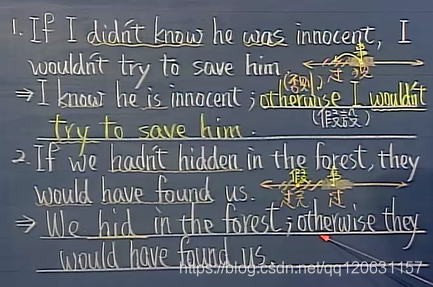 1. If I didn't know he was innocent, I
wouldn't try to save him.
过 现
(否则)
⇒ I know he is innocent ; otherwise I wouldn't
(假設)
try to save him.
2. If we hadn't hidden in the forest, they
would have found us.
假
过完 过
⇒ We hid in the forest ; otherwise they
would have found us.
https://blog.csdn.net/qq120631157